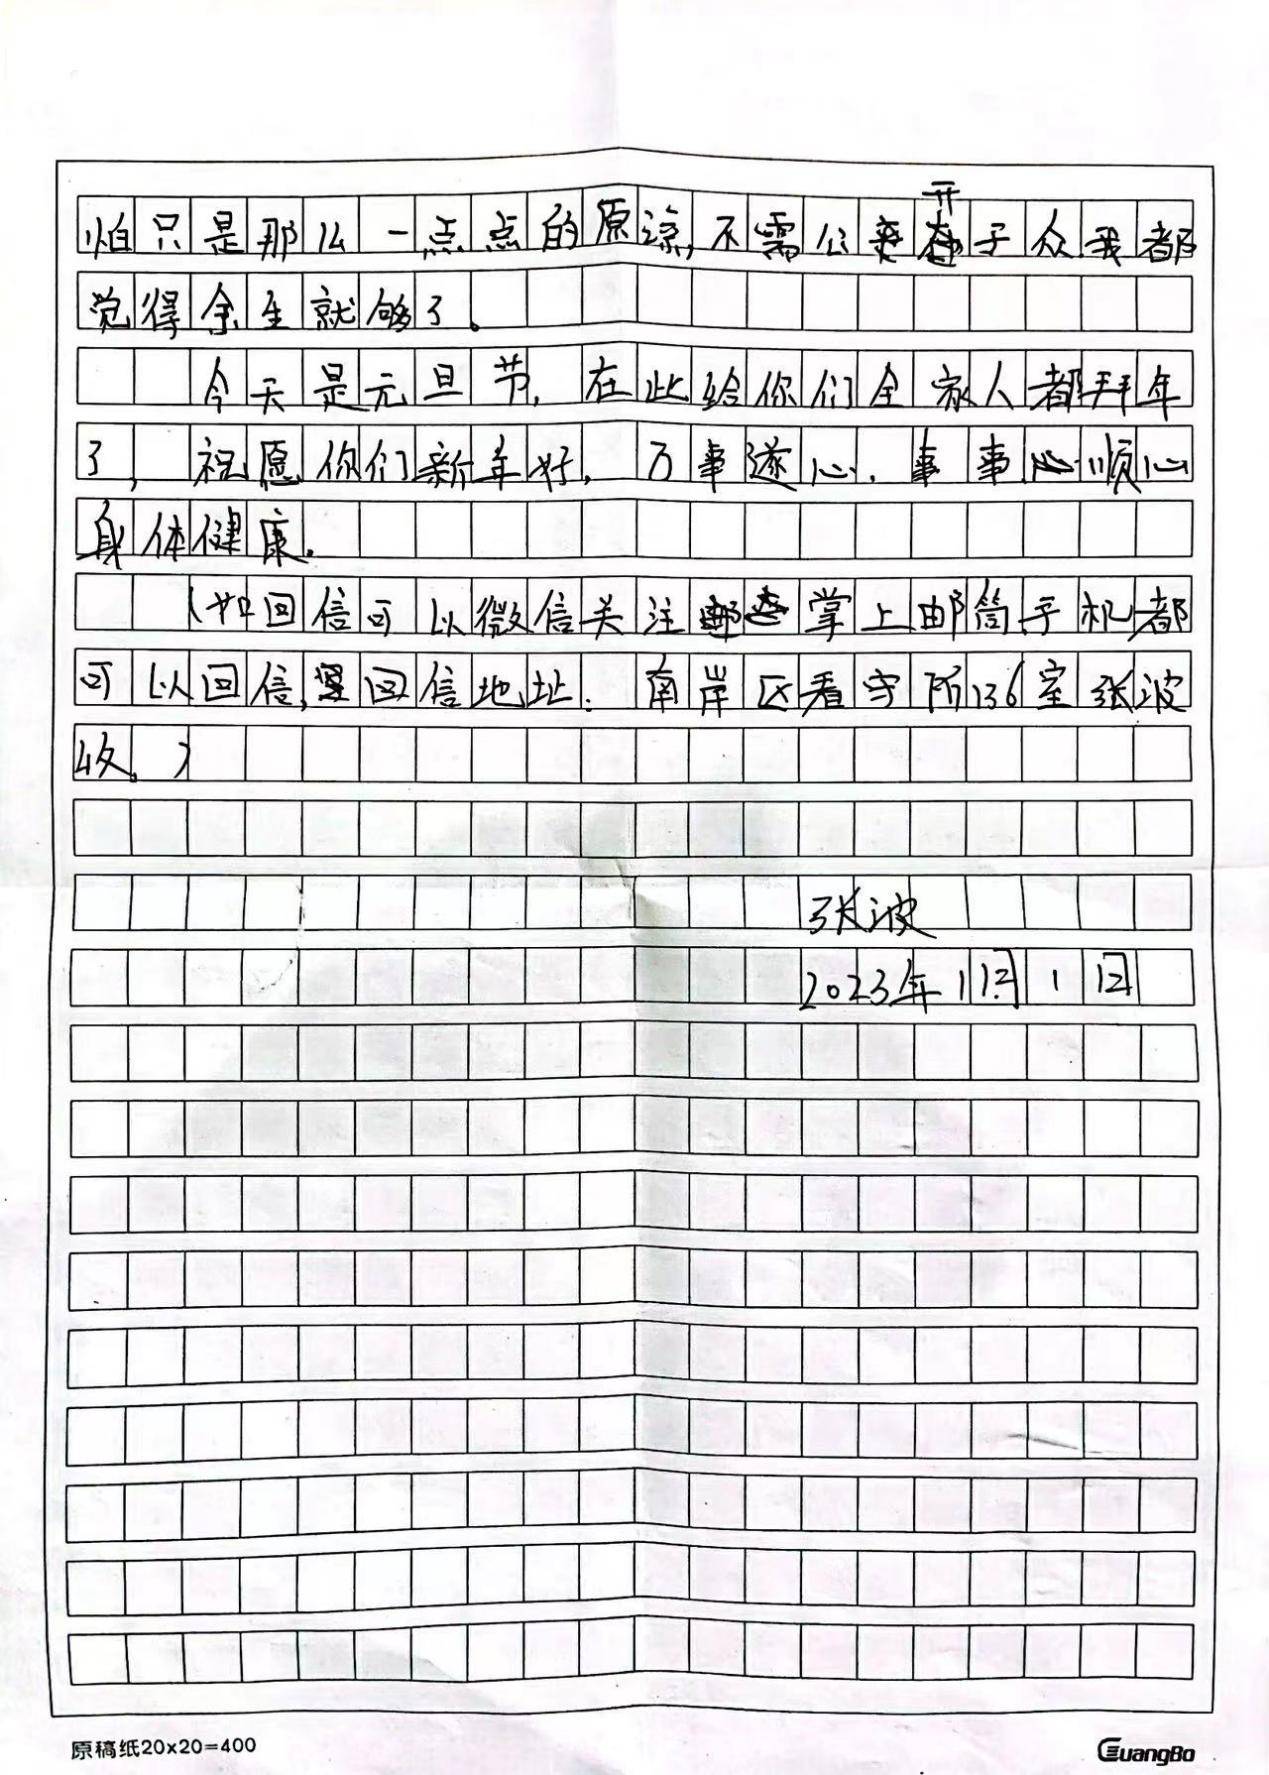 怕只是那么一点点的原谅,不需公开于众我都
觉得余生就够了。
今天是元旦节,在此给你们全家人都拜年
了,祝愿你们新年好,万事遂心.事事顺心
身体健康.
(如回信可以微信关注掌上邮筒手机都
可以回信,回信地址:南岸区看守所136室张波
收.)
张波
2023年1月1日
原稿纸20x20=400
GuangBo